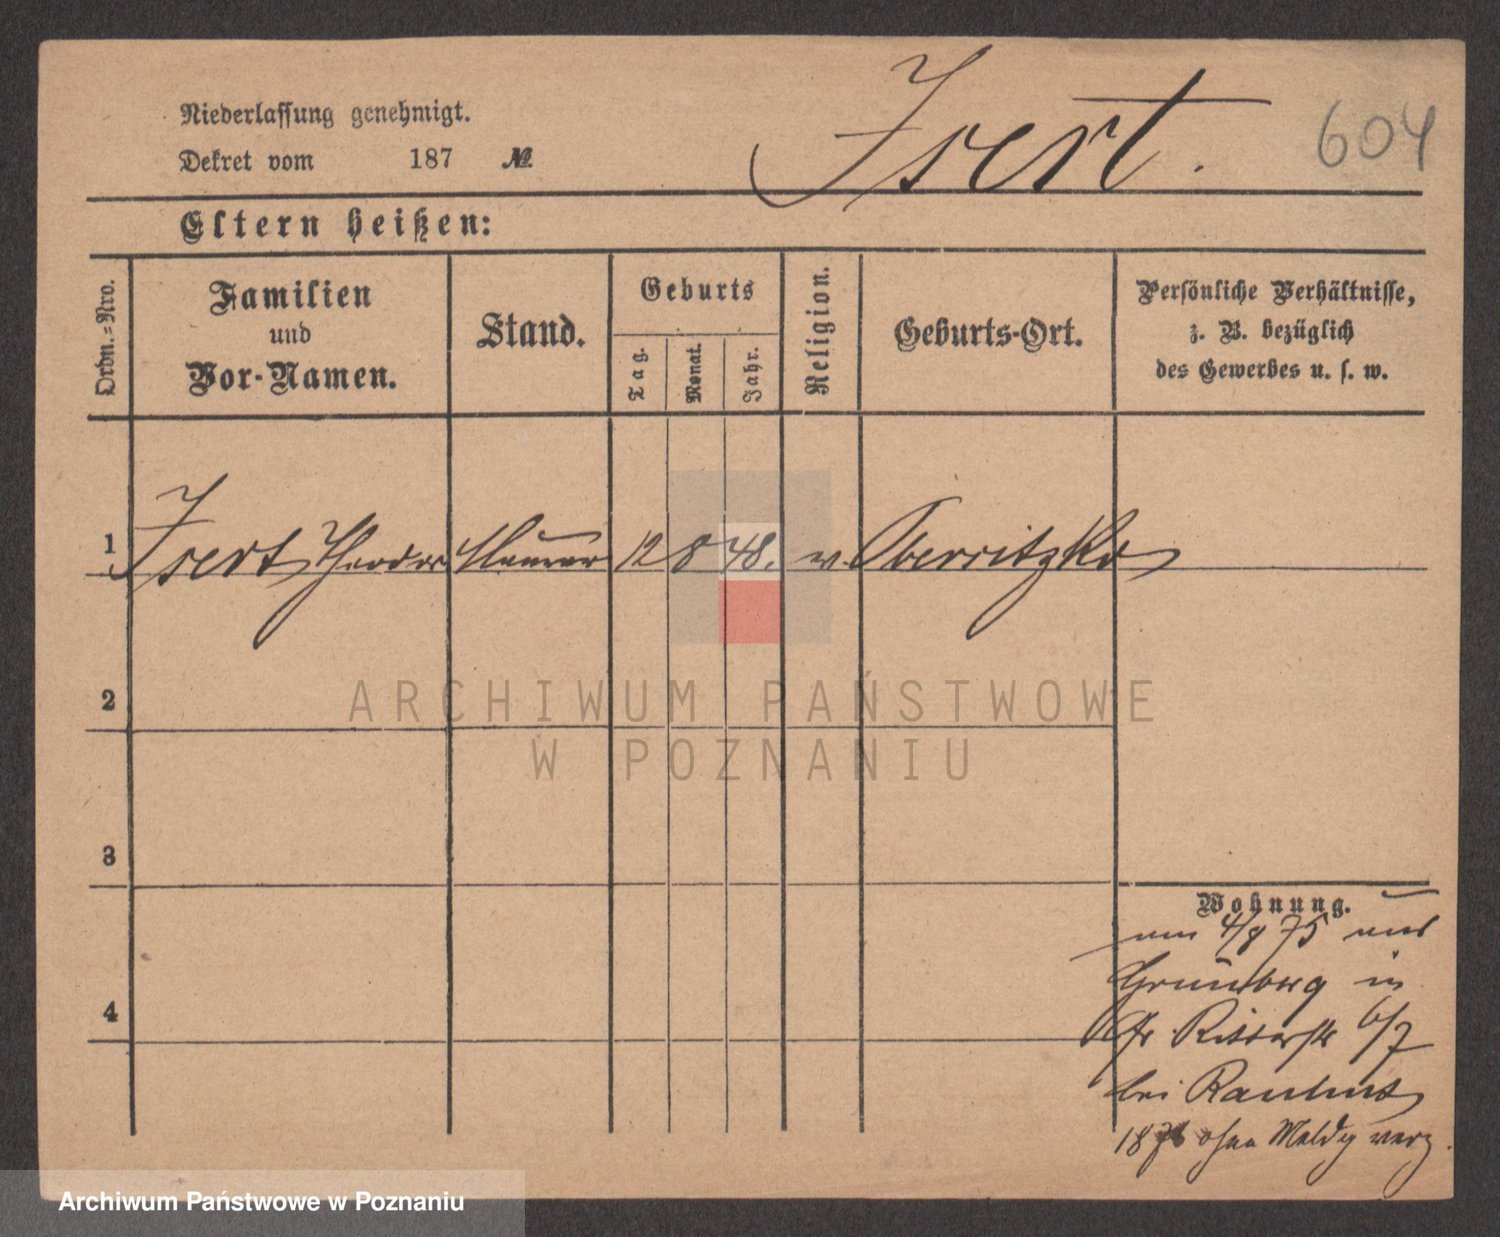 Niederlassung genehmigt.
Dekret vom 187 №
Isert.
604
Eltern heißen:
Ordn.=Nro.
Familien
und
Vor-Namen.
Stand.
Geburts
Tag.
Monat.
Jahr.
Religion.
Geburts-Ort.
Persönliche Verhältnisse,
z. B. bezüglich
des Gewerbes u. s. w.
1 Isert Theodor Maurer 12 8 48. Oberritzko
2
3
4
Wohnung.
4/9 75 aus
Grünberg in
Ritterstr 6/7
bei
1876 ohne Meldg verz.
ARCHIWUM PAŃSTWOWE
W POZNANIU
Archiwum Państwowe w Poznaniu